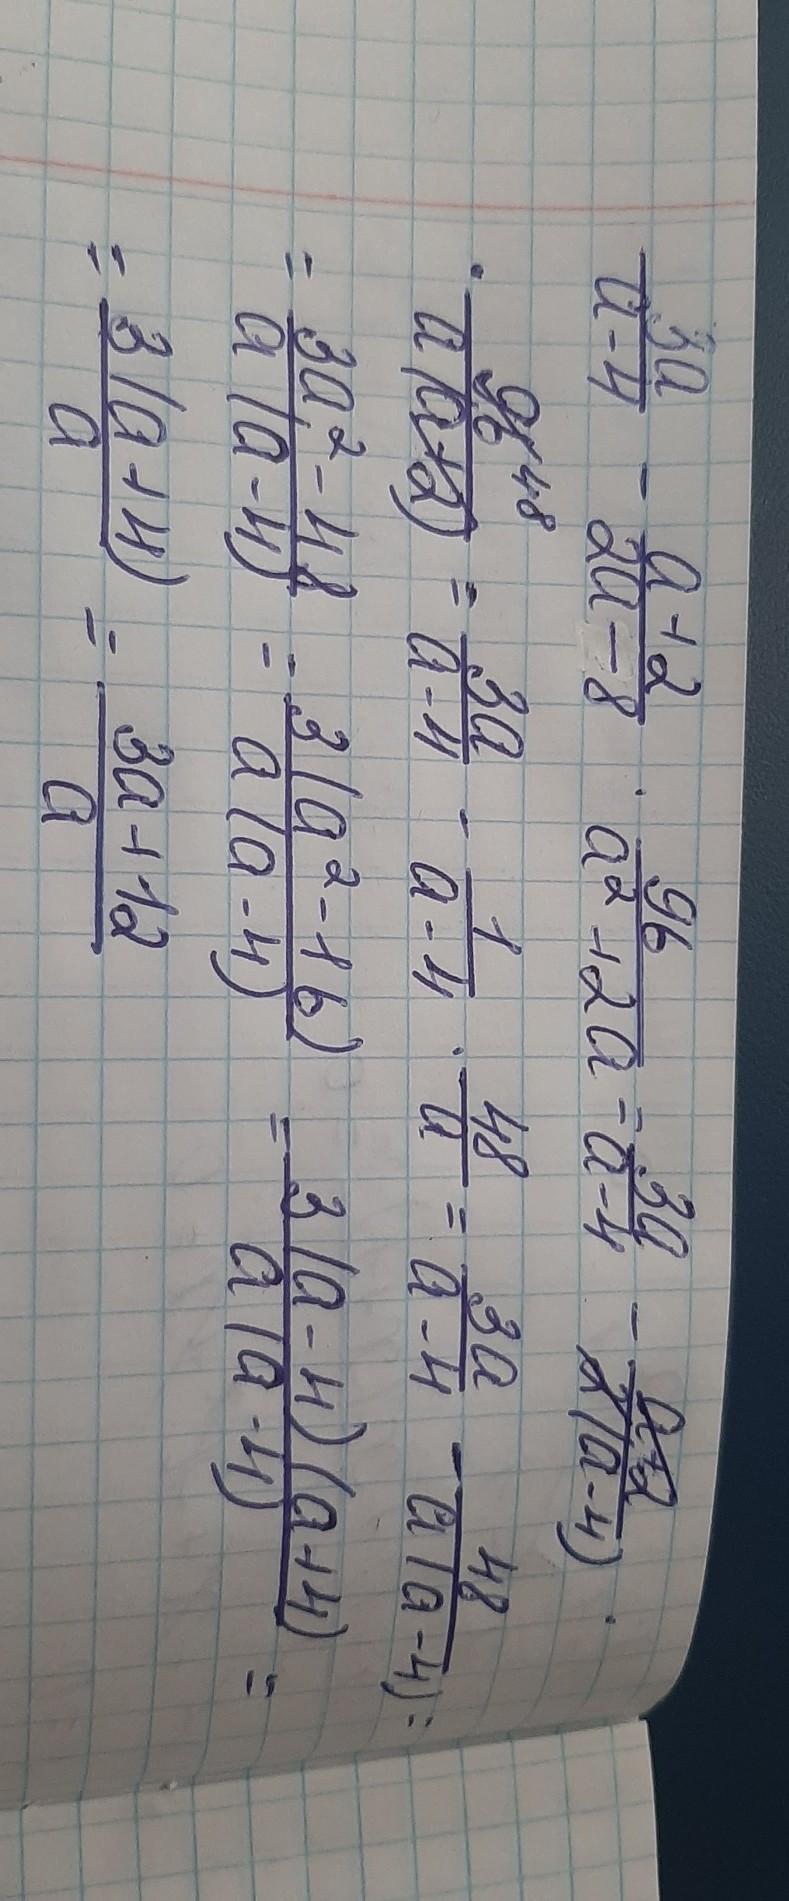 3a/(a-4) - (a+2)/(2a-8) · 96/(a²+2a) = 3a/(a-4) - (a+2)/(2(a-4)) ·
· 96 48/(a(a+2)) = 3a/(a-4) - 1/(a-4) · 48/a = 3a/(a-4) - 48/(a(a-4)) =
= (3a²-48)/(a(a-4)) = 3(a²-16)/(a(a-4)) = 3(a-4)(a+4)/(a(a-4)) =
= 3(a+4)/a = (3a+12)/a